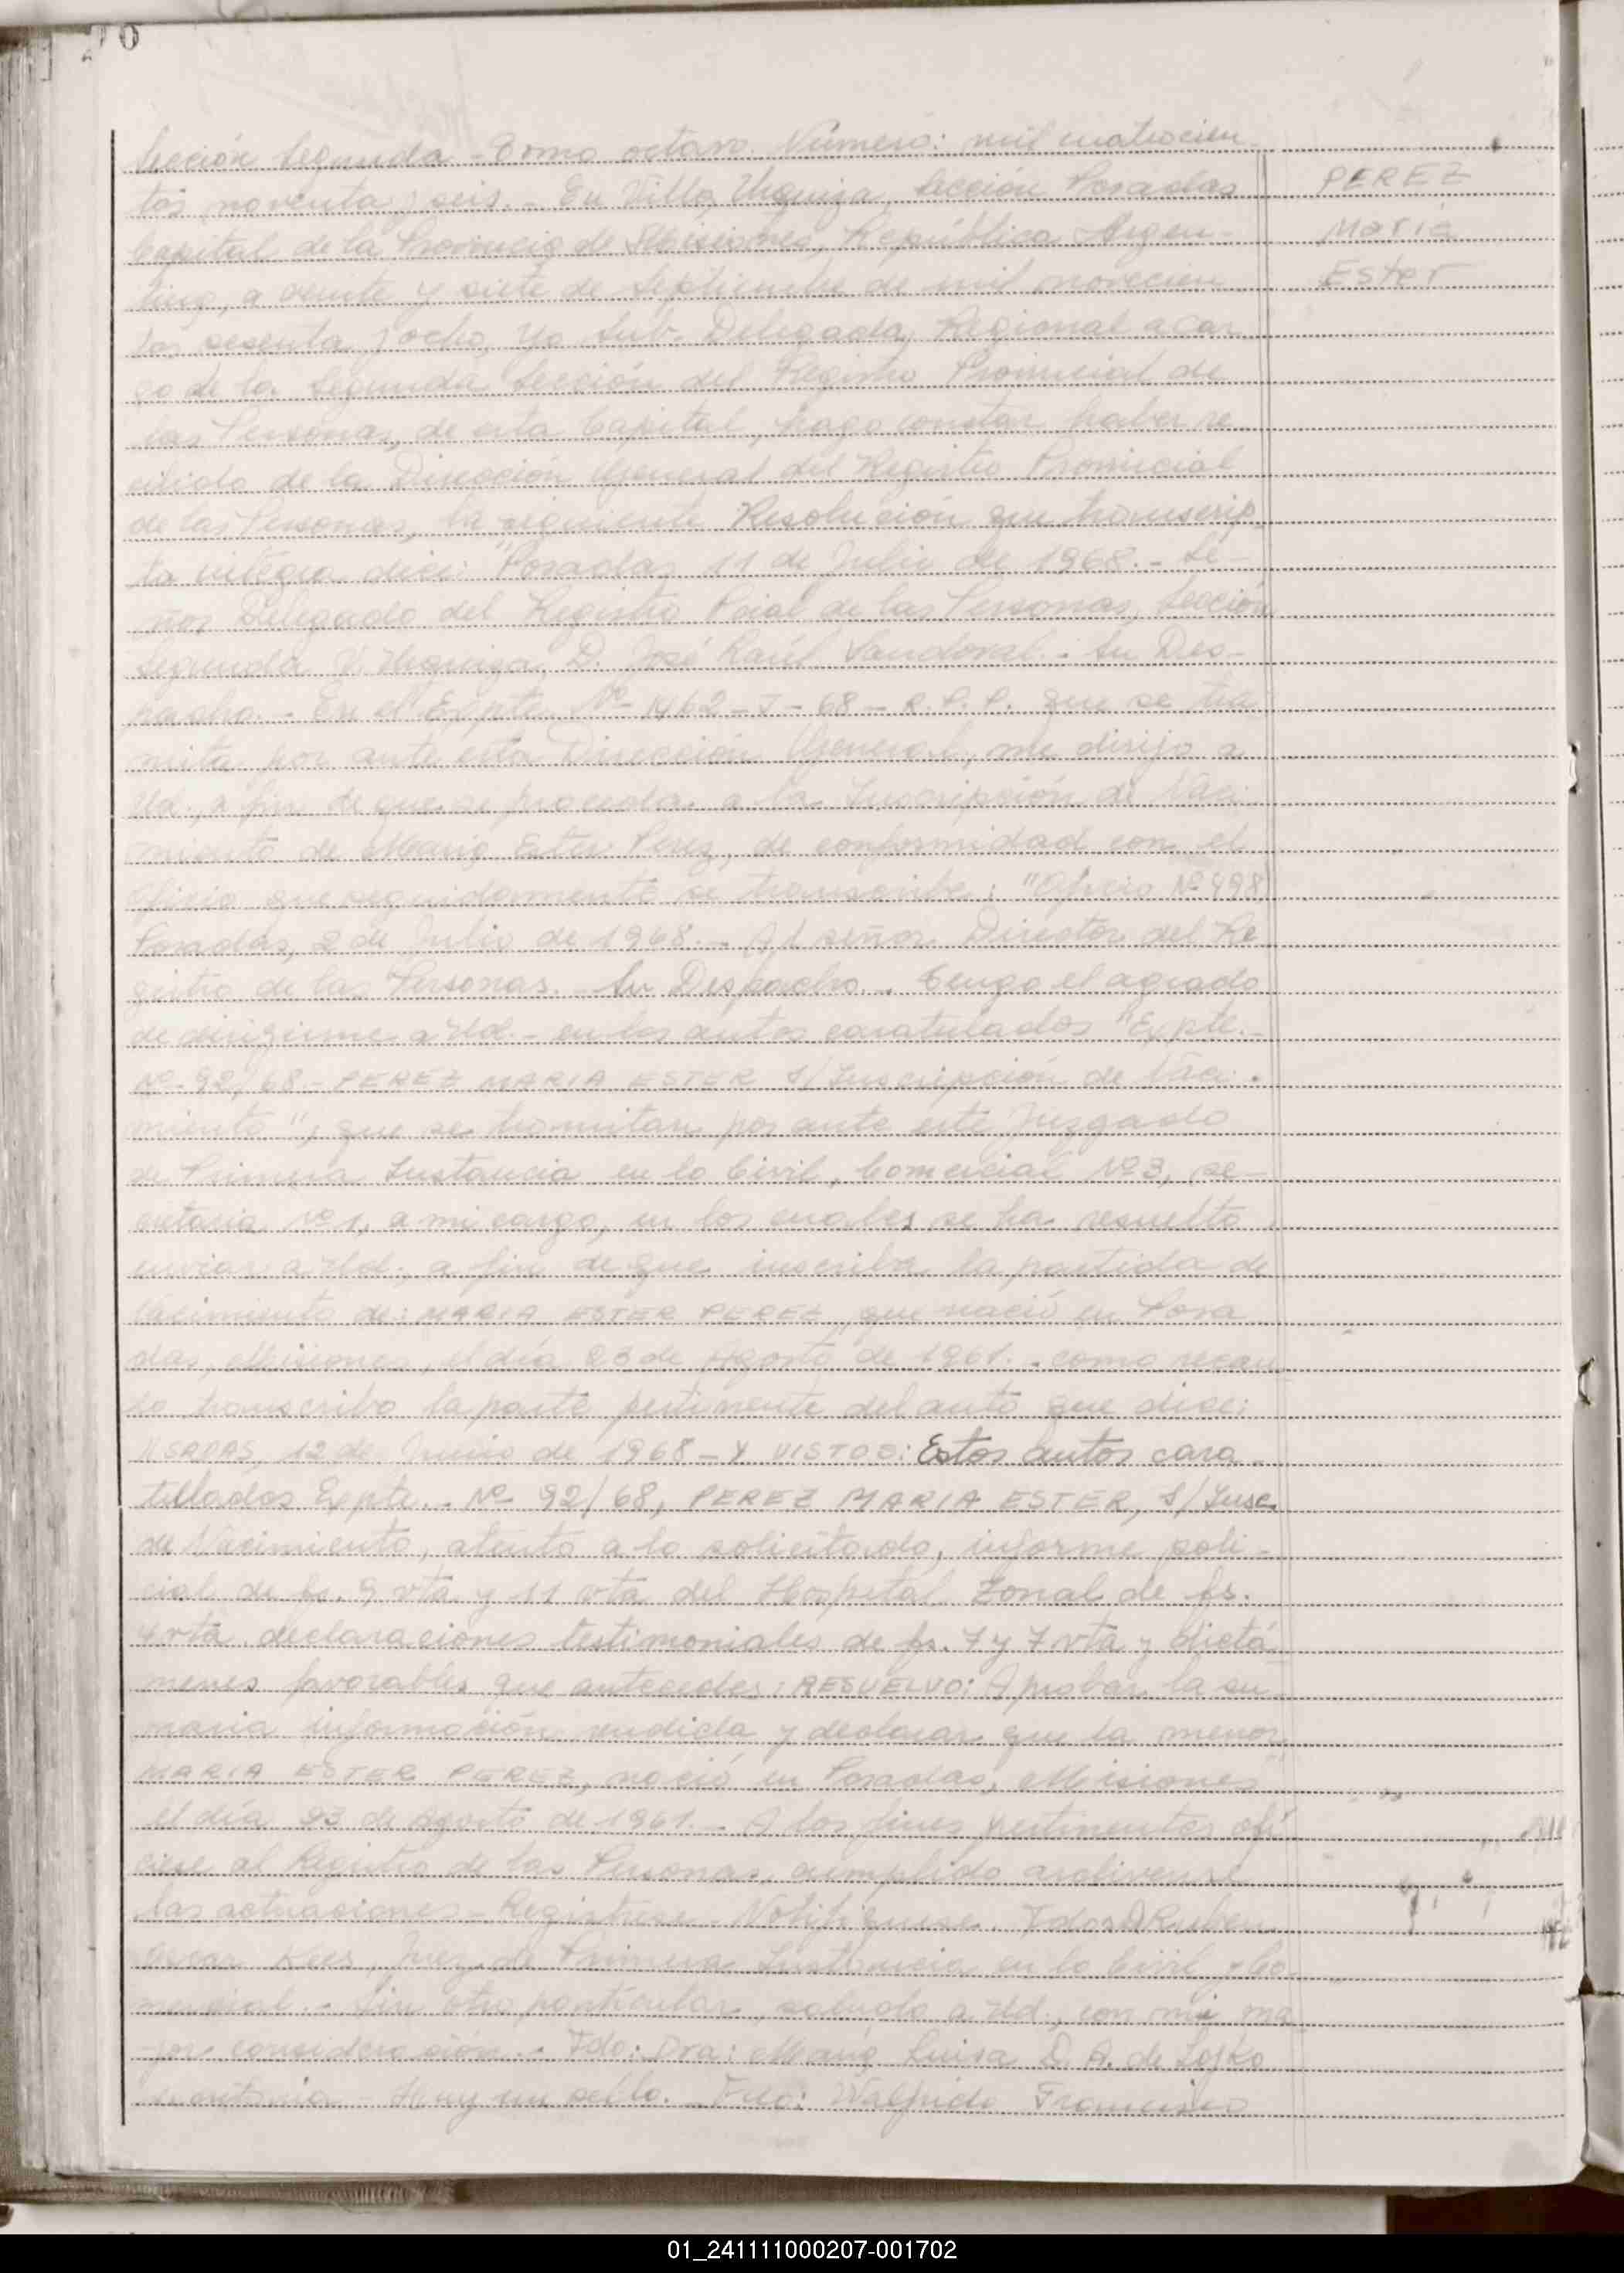 Sección Segunda - Tomo octavo. Número: mil cuatrocien
tos noventa y seis. - En Villa Urquiza, Sección Posadas
PEREZ
Capital de la Provincia de Misiones, República Argen-
María
tina, a veinte y siete de Septiembre de mil novecien
Ester
tos sesenta y ocho, Yo Sub. Delegado Regional a car
go de la Segunda Sección del Registro Provincial de
las Personas, de esta Capital, hago constar haber re
cibido de la Dirección General del Registro Provincial
de las Personas, la siguiente Resolución que transcrip
ta íntegra dice: "Posadas, 11 de Julio de 1968. - Se-
ñor Delegado del Registro Pcial de las Personas, Sección
Segunda V. Urquiza, D. José Raúl Sandoval. - Su Des-
pacho. - En el Expte. Nº 1462 - I - 68 - R.P.P. que se tra
mita por ante esta Dirección General, me dirijo a
Ud., a fin de que se proceda a la Inscripción de Naci
miento de María Ester Perez, de conformidad con el
Oficio que seguidamente se transcribe: "Oficio Nº 498
Posadas, 2 de Julio de 1968. - Al señor Director del Re
gistro de las Personas. - Su Despacho. - Tengo el agrado
de dirigirme a Ud. - en los autos caratulados "Expte. -
Nº 92/68 - PEREZ MARIA ESTER S/Inscripción de Naci-
miento", que se tramitan por ante este Juzgado
de Primera Instancia en lo Civil, Comercial Nº 3, se-
cretaria Nº 1, a mi cargo, en los cuales se ha resuelto
enviar a Ud., a fin de que inscriba la partida de
Nacimiento de: MARIA ESTER PEREZ, que nació en Posa
das, Misiones, el día 23 de Agosto de 1961. - como recau
do transcribo la parte pertinente del auto que dice:
POSADAS, 12 de Junio de 1968 - Y VISTOS: Estos autos cara
tulados Expte. - Nº 92/68, PEREZ MARIA ESTER, S/Insc.
de Nacimiento, atento a lo solicitado, informe poli-
cial de fs. 9 vta y 11 vta del Hospital Zonal de fs.
4 vta. declaraciones testimoniales de fs. 7 y 7 vta y dictá
menes favorables que anteceden: RESUELVO: Aprobar la su
maria información rendida y declarar que la menor
MARIA ESTER PEREZ, nació en Posadas, Misiones
el día 23 de Agosto de 1961. - A los fines pertinentes ofí
ciese al Registro de las Personas, cumplido archivense
las actuaciones - Registrese. Notifiquese. Fdo: Ruben
Oscar, Juez de Primera Instancia en lo Civil y Co
mercial. - Sin otro particular, saludo a Ud., con mi ma
yor consideración. - Fdo: Dra: María Luisa D. A. de
Secretaria - Hay un sello. - Fdo: Walfrido Francisco
01_241111000207-001702